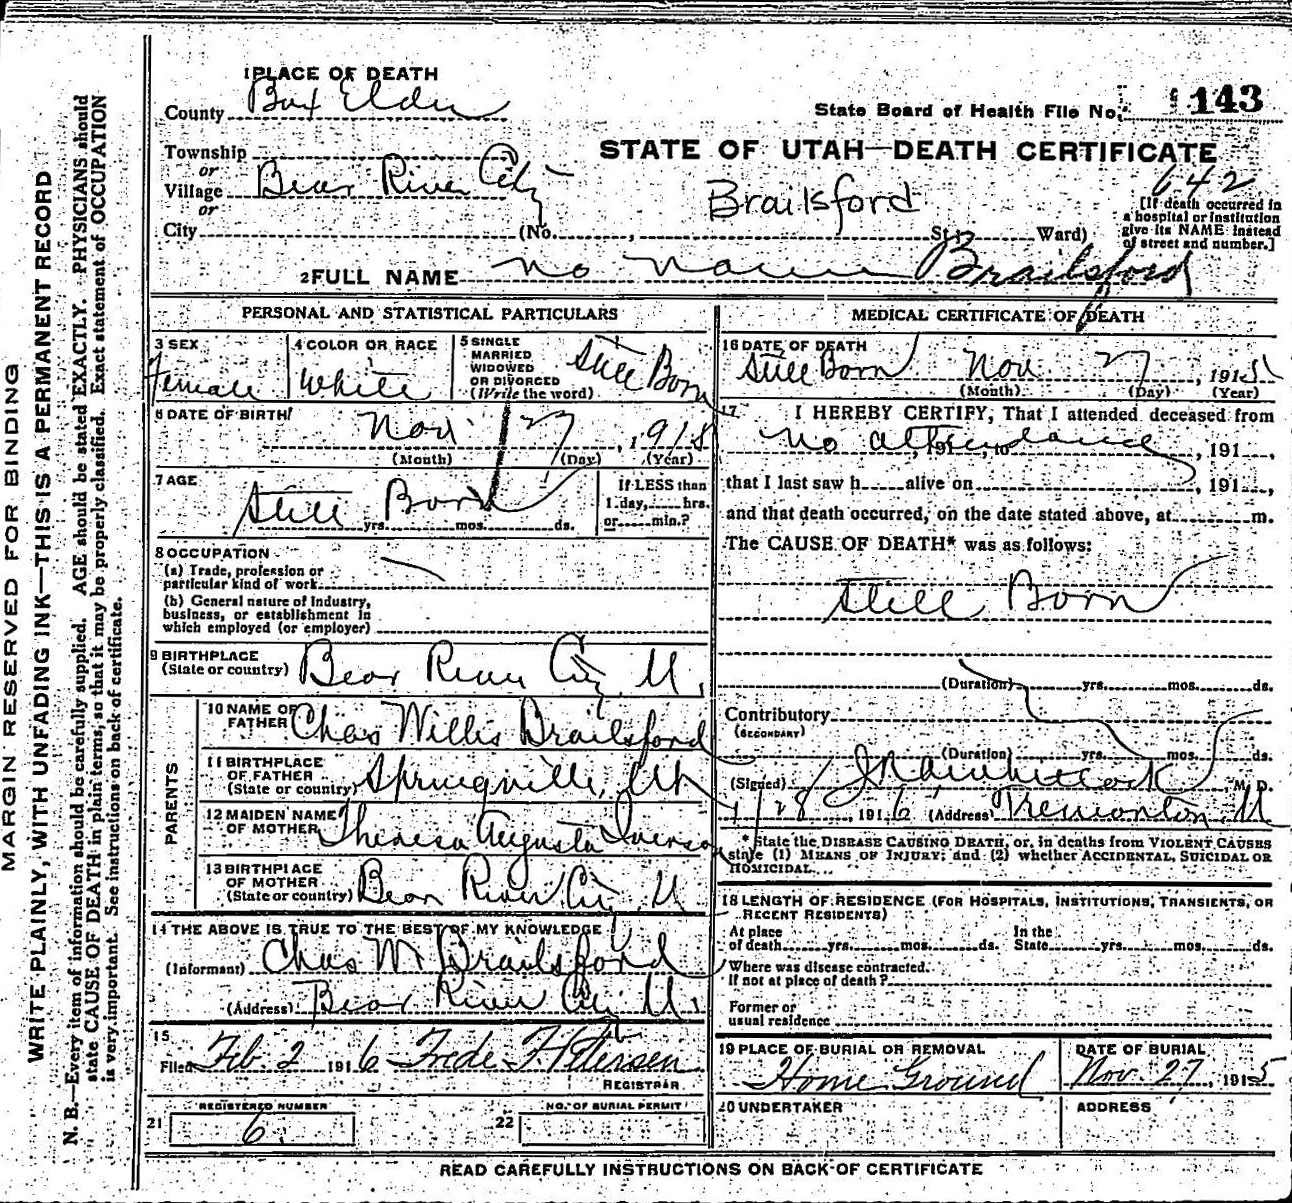 MARGIN RESERVED FOR BINDING
WRITE PLAINLY, WITH UNFADING INK—THIS IS A PERMANENT RECORD
N. B.—Every item of information should be carefully supplied. AGE should be stated EXACTLY. PHYSICIANS should
state CAUSE OF DEATH in plain terms, so that it may be properly classified. Exact statement of OCCUPATION
is very important. See instructions on back of certificate.
1 PLACE OF DEATH
County Box Elder
State Board of Health File No. 143
STATE OF UTAH—DEATH CERTIFICATE
Township
or
Village Bear River City
or
City (No. , St.; Ward)
Brailsford
642
[If death occurred in
a hospital or institution
give its NAME instead
of street and number.]
2 FULL NAME no name Brailsford
PERSONAL AND STATISTICAL PARTICULARS
3 SEX
Female
4 COLOR OR RACE
White
5 SINGLE
MARRIED
WIDOWED
OR DIVORCED
(Write the word)
Still Born
6 DATE OF BIRTH
Nov 27, 1918
(Month) (Day) (Year)
7 AGE
Still Born
yrs. mos. ds.
If LESS than
1 day, hrs.
or min.?
8 OCCUPATION
(a) Trade, profession or
particular kind of work
(b) General nature of Industry,
business, or establishment in
which employed (or employer)
9 BIRTHPLACE
(State or country) Bear River City U.
PARENTS
10 NAME OF
FATHER Chas Willis Brailsford
11 BIRTHPLACE
OF FATHER
(State or country) Springville, Ut
12 MAIDEN NAME
OF MOTHER Theresa Augusta Iverson
13 BIRTHPLACE
OF MOTHER
(State or country) Bear River City U
14 THE ABOVE IS TRUE TO THE BEST OF MY KNOWLEDGE
(Informant) Chas W Brailsford
(Address) Bear River City U.
15
Filed Feb. 2 1916 Frede F Petersen
REGISTRAR
REGISTERED NUMBER
21 6
NO. OF BURIAL PERMIT
22
MEDICAL CERTIFICATE OF DEATH
16 DATE OF DEATH
Still Born Nov 27, 1915
(Month) (Day) (Year)
17 I HEREBY CERTIFY, That I attended deceased from
no attendance, 191, to , 191,
that I last saw h alive on , 191,
and that death occurred, on the date stated above, at m.
The CAUSE OF DEATH* was as follows:
Still Born
(Duration) yrs. mos. ds.
Contributory
(SECONDARY)
(Duration) yrs. mos. ds.
(Signed) , M. D.
1/28, 1916 (Address) Tremonton, U
* State the DISEASE CAUSING DEATH, or, in deaths from VIOLENT CAUSES
state (1) MEANS OF INJURY; and (2) whether ACCIDENTAL, SUICIDAL OR
HOMICIDAL.
18 LENGTH OF RESIDENCE (FOR HOSPITALS, INSTITUTIONS, TRANSIENTS, OR
RECENT RESIDENTS)
At place
of death yrs. mos. ds.
In the
State yrs. mos. ds.
Where was disease contracted,
If not at place of death?
Former or
usual residence
19 PLACE OF BURIAL OR REMOVAL
Home Ground
DATE OF BURIAL
Nov. 27, 1915
20 UNDERTAKER
ADDRESS
READ CAREFULLY INSTRUCTIONS ON BACK OF CERTIFICATE